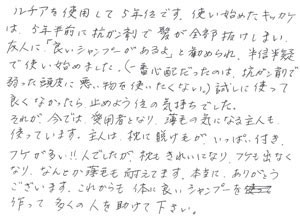 ルチアを使用して5年位です。使い始めたキッカケ
は、5年半前に抗ガン剤で髪が全部抜けてしまい、
友人に「良いシャンプーがあるよ」と勧められ、半信半疑
で使い始めました。(一番心配だったのは、抗ガン剤で
弱った頭皮に悪い物を使いたくない。)試しに使って
良くなかったら止めよう位の気持ちでした。
それが、今では、愛用者となり、薄毛の気になる主人も、
使っています。主人は、枕に脱け毛が、いっぱい付き、
フケが多い!!人でしたが、枕もきれいになり、フケも出なく
なり、なんとか薄毛も耐えてます。本当に、ありがとう
ございます。これからも体に良いシャンプーを
作って多くの人を助けて下さい。